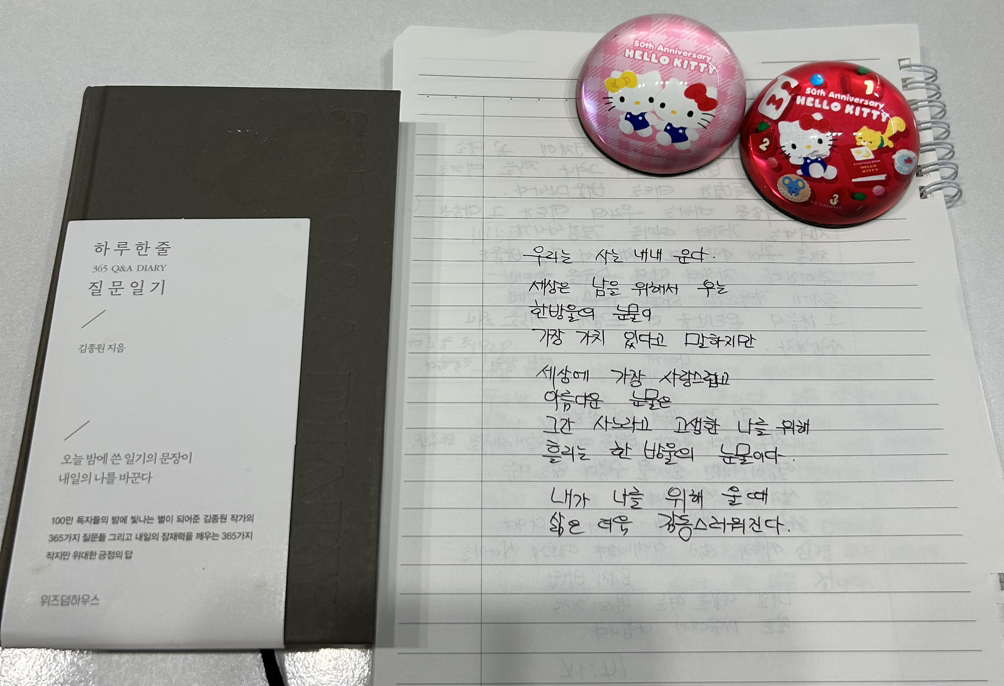 하루한줄
365 Q&A DIARY
질문일기
김종원 지음
오늘 밤에 쓴 일기의 문장이
내일의 나를 바꾼다
100만 독자들의 밤에 빛나는 별이 되어준 김종원 작가의
365가지 질문들 그리고 내일의 잠재력을 깨우는 365가지
작지만 위대한 긍정의 답
위즈덤하우스
50th Anniversary
HELLO KITTY
50th Anniversary
HELLO KITTY
1
2
3
우리는 사는 내내 운다.
세상은 남을 위해서 우는
한방울의 눈물이
가장 가치 있다고 말하지만
세상에 가장 사랑스럽고
아름다운 눈물은
그간 사느라고 고생한 나를 위해
흘리는 한 방울의 눈물이다.
내가 나를 위해 울 때
삶은 더욱 감동스러워진다.